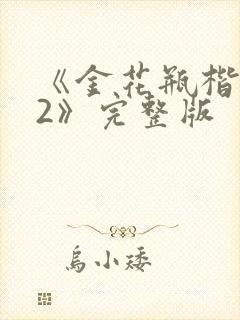 《金花瓶楷
2》完整版
乌小矮